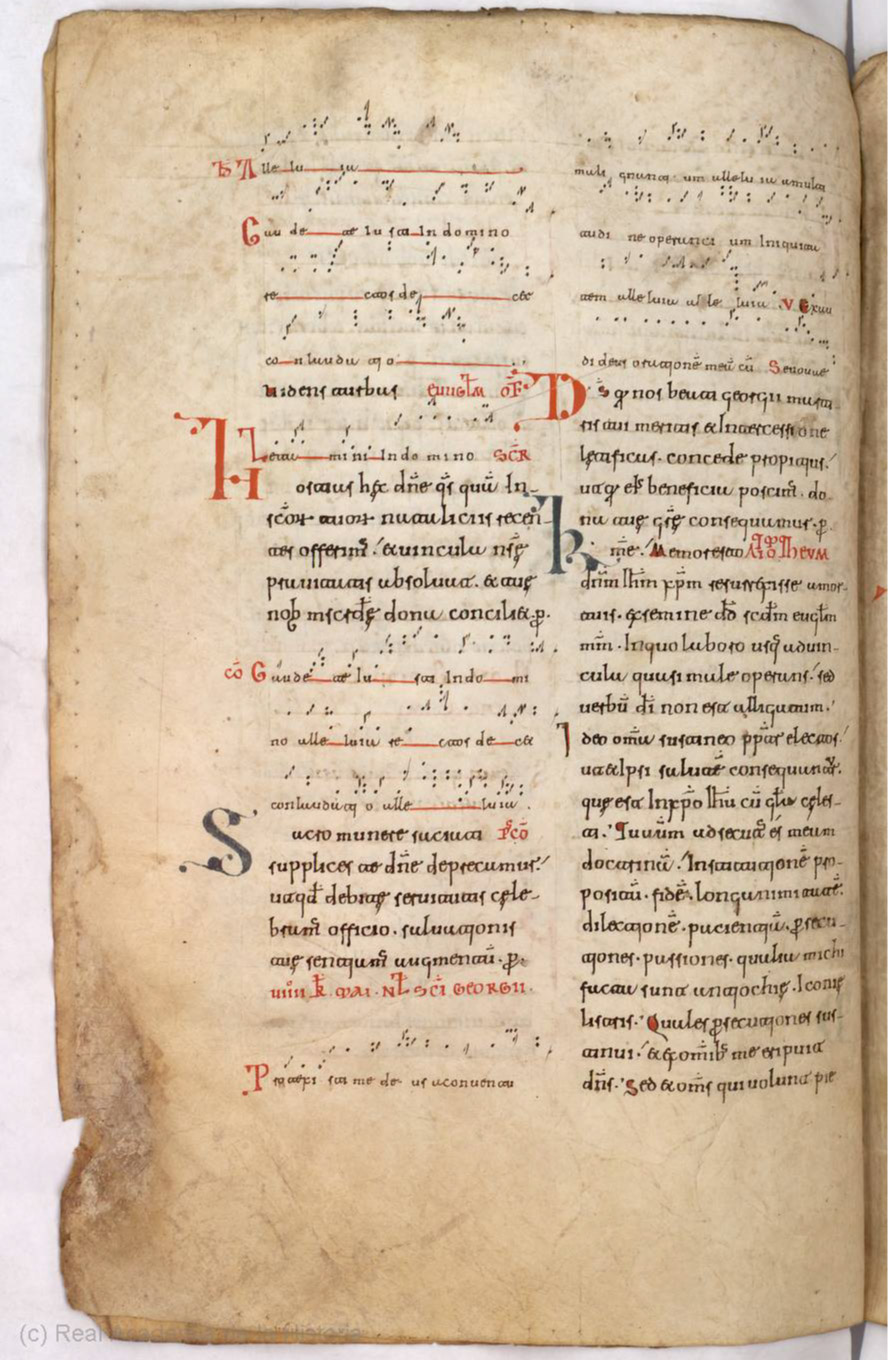 Alle lu ia
Gau de te iu sti In domino
re ctos de cet
co n lauda ti o
Uidens turbas euuglm off
Leta mi ni In do mi no SCR
Hostias hęc dñe qs quas In
scōr tuor nataliciis recen
tes offerimꝰ et uincula nrę
prauitatis absoluat. et tuę
nob mscdę dona conciliet. p.
cō Gaude te iu sti Indo mi
no alle luia re ctos de cet
conlaudati o alle luia .
Sacro munere saciati P cō
supplices te dñe deprecamur
ut qd debitę seruitutis cele
bramꝰ officio. saluationis
tuę senciamꝰ augmentū. p.
VIIII K MAI. NT SCI GEORGII.
Protexi sti me de us aconuentu
mali gnanti um alleluia a multi
tudi ne operanti um Iniquita
tem alleluia al le luia V Exau
di deus orationē meā cū Seuouae
Dš q nos beati georgii marti
ris tui meritis et Intercessione
letificas. concede propitius
ut q eiꝰ beneficia poscimꝰ. do
na tuę grę consequamur. p.
Kme. Memor esto AD TIMOTHEUM
dnm ihm xpm resurrexisse amor
tuis. ex semine dd scdm euglm
mm. In quo laboro usq aduin
cula quasi male operans. sed
uerbū di non est alligatum.
Ideo omia sustineo pptr electos.
ut et Ipsi salutē consequantur.
que est In xpo ihu cū gla celes
ti. Tu aūm adsecutꝰ es meam
doctrinā. Institutionē pro
positū. fidē. longanimitatē.
dilectionē. pacientiā. persecu
tiones. passiones. qualia michi
facta sunt antiochię. Iconię
listris. Quales persecutiones sus
tinui. et ex omib me eripuit
dns. Sed et oms qui uolunt pie